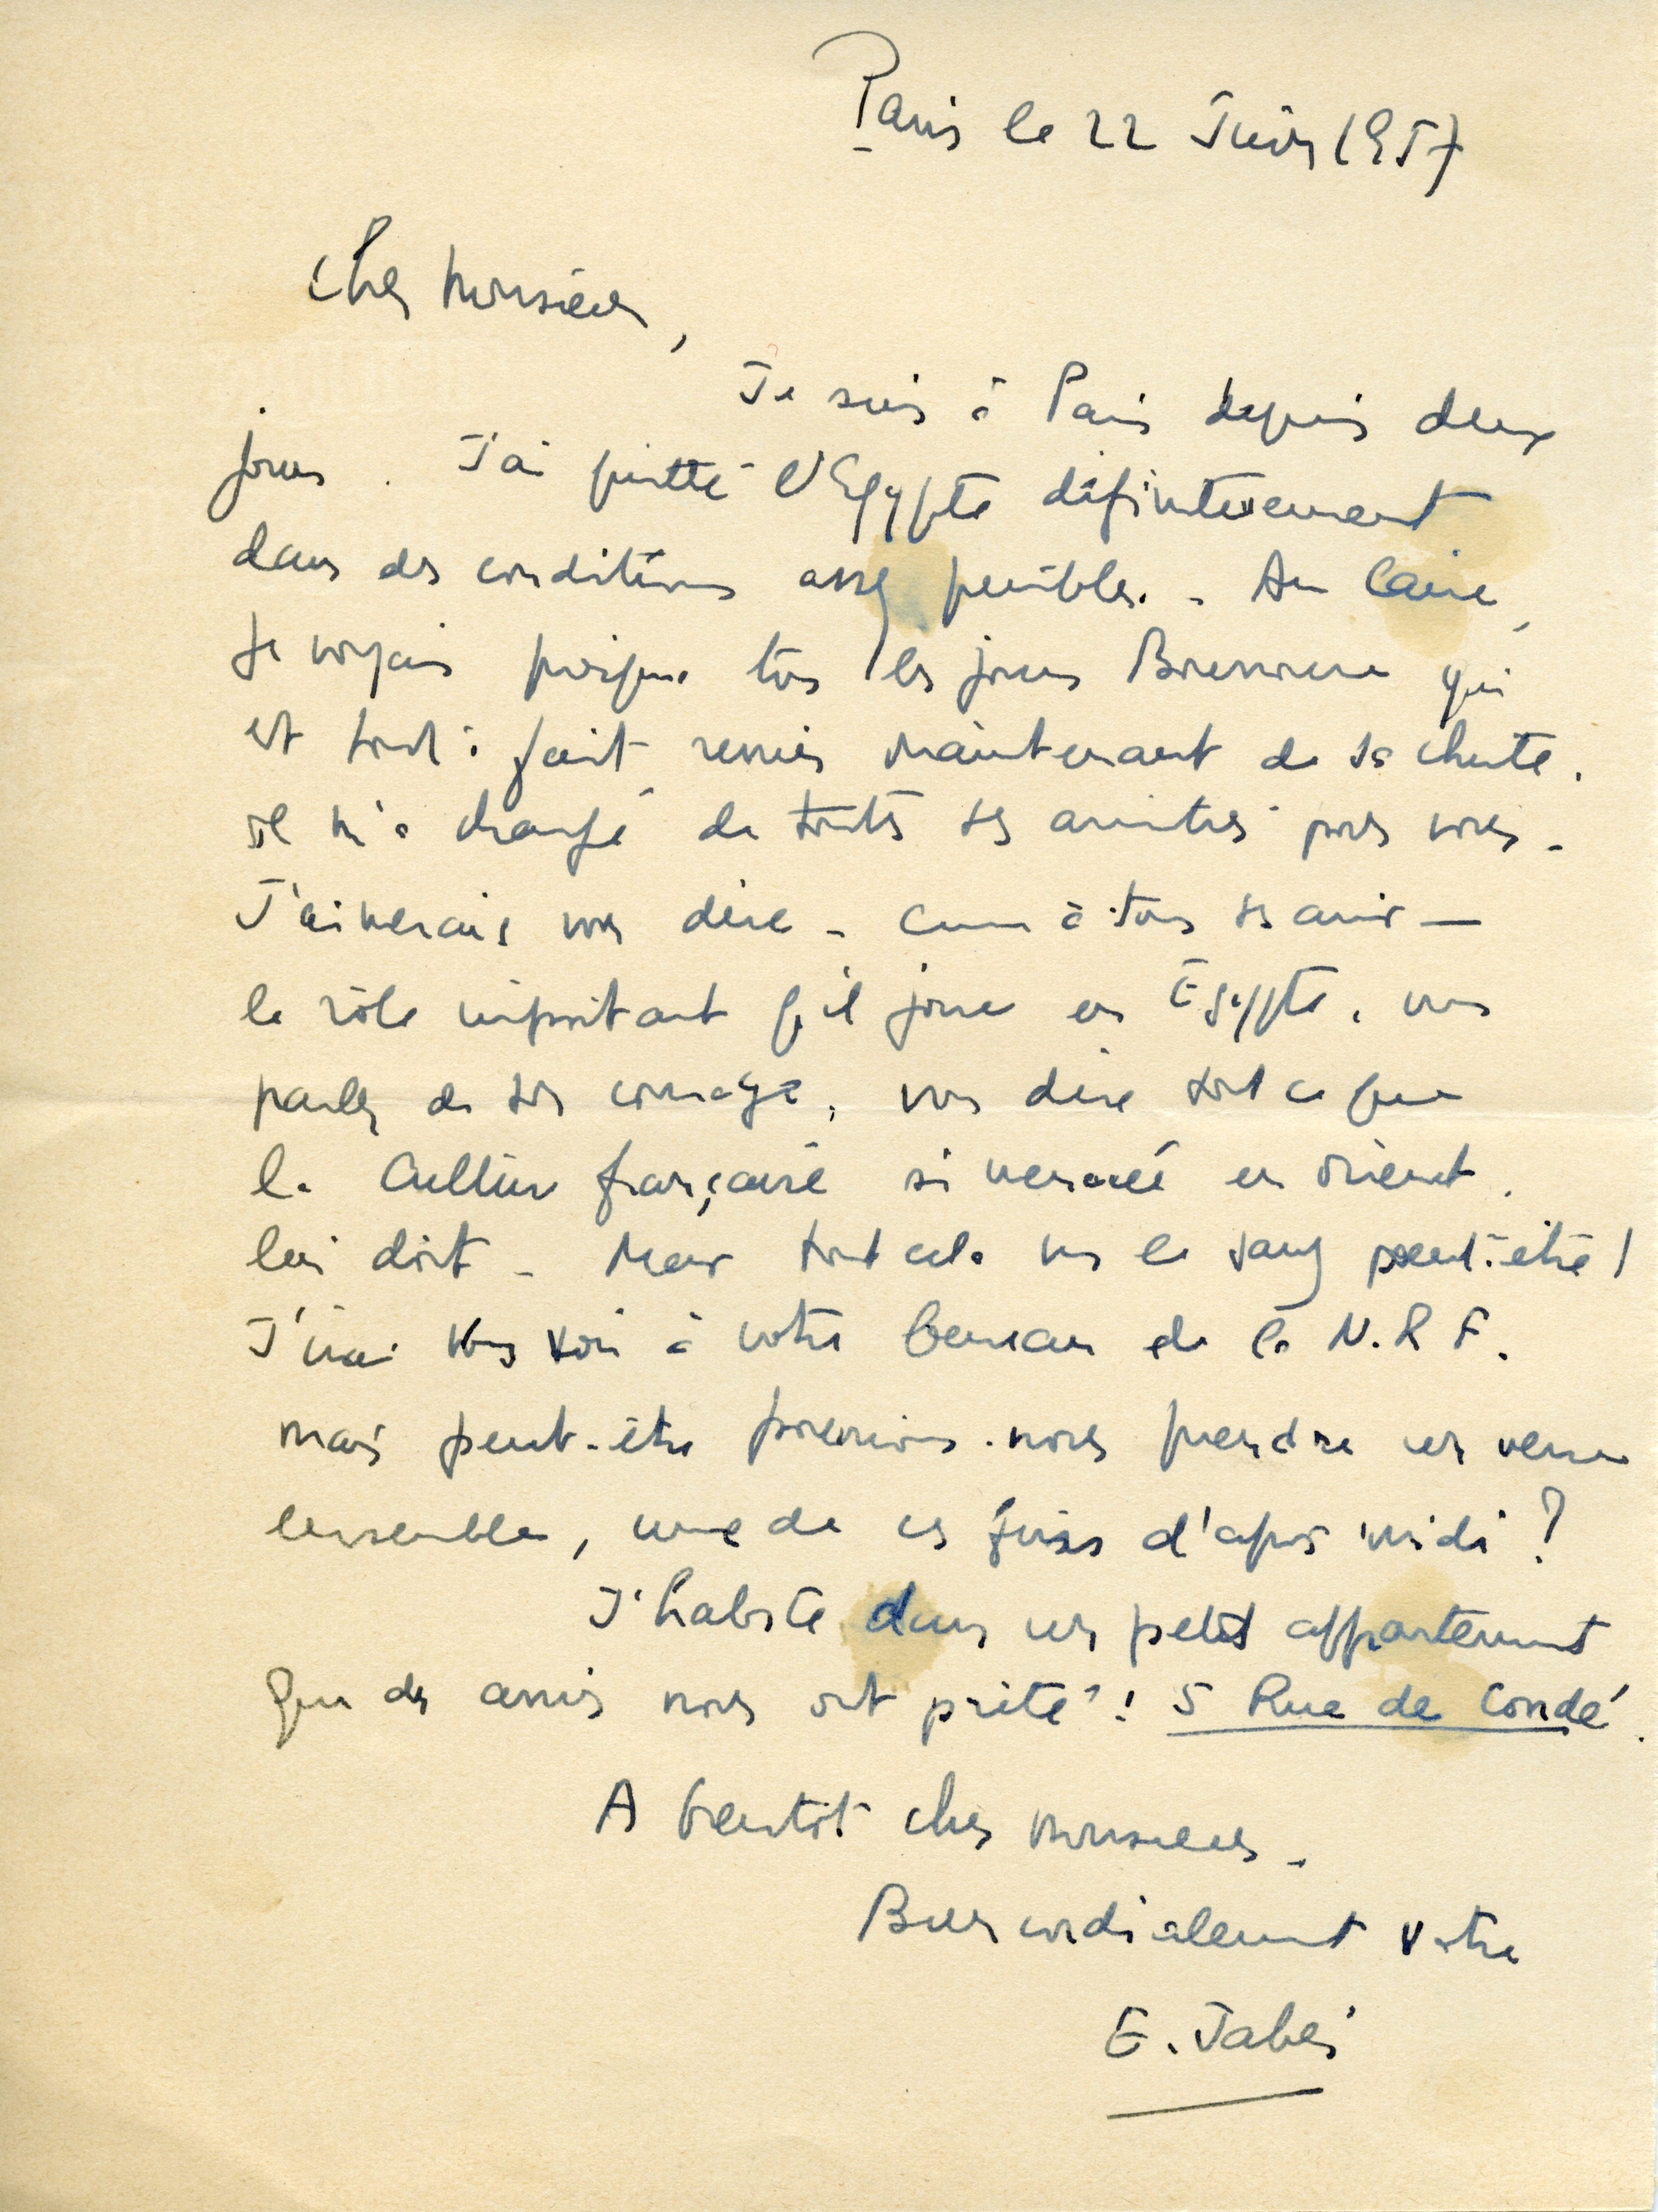 Paris le 22 Juin 1957
Cher Monsieur,
Je suis à Paris depuis deux
jours. J'ai quitté l'Egypte définitivement
dans des conditions assez pénibles. - Au Caire,
je voyais presque tous les jours Bonnoure qui
est tout à fait remis maintenant de sa chute.
Il m'a chargé de toutes ses amitiés pour vous -
J'aimerais vous dire - comme à tous ses amis —
le rôle important qu'il joue en Égypte, vous
parler de son courage, vous dire tout ce que
la Culture française si menacée en Orient,
lui doit - Mais tout cela vous le savez peut-être !
J'irai vous voir à votre bureau de la N.R.F.
mais peut-être pourrions-nous prendre un verre
ensemble, une de ces fins d'après midi ?
J'habite dans un petit appartement
que des amis nous ont prêté : 5 Rue de Condé.
A bientôt cher Monsieur -
Bien cordialement votre
E. Jabès